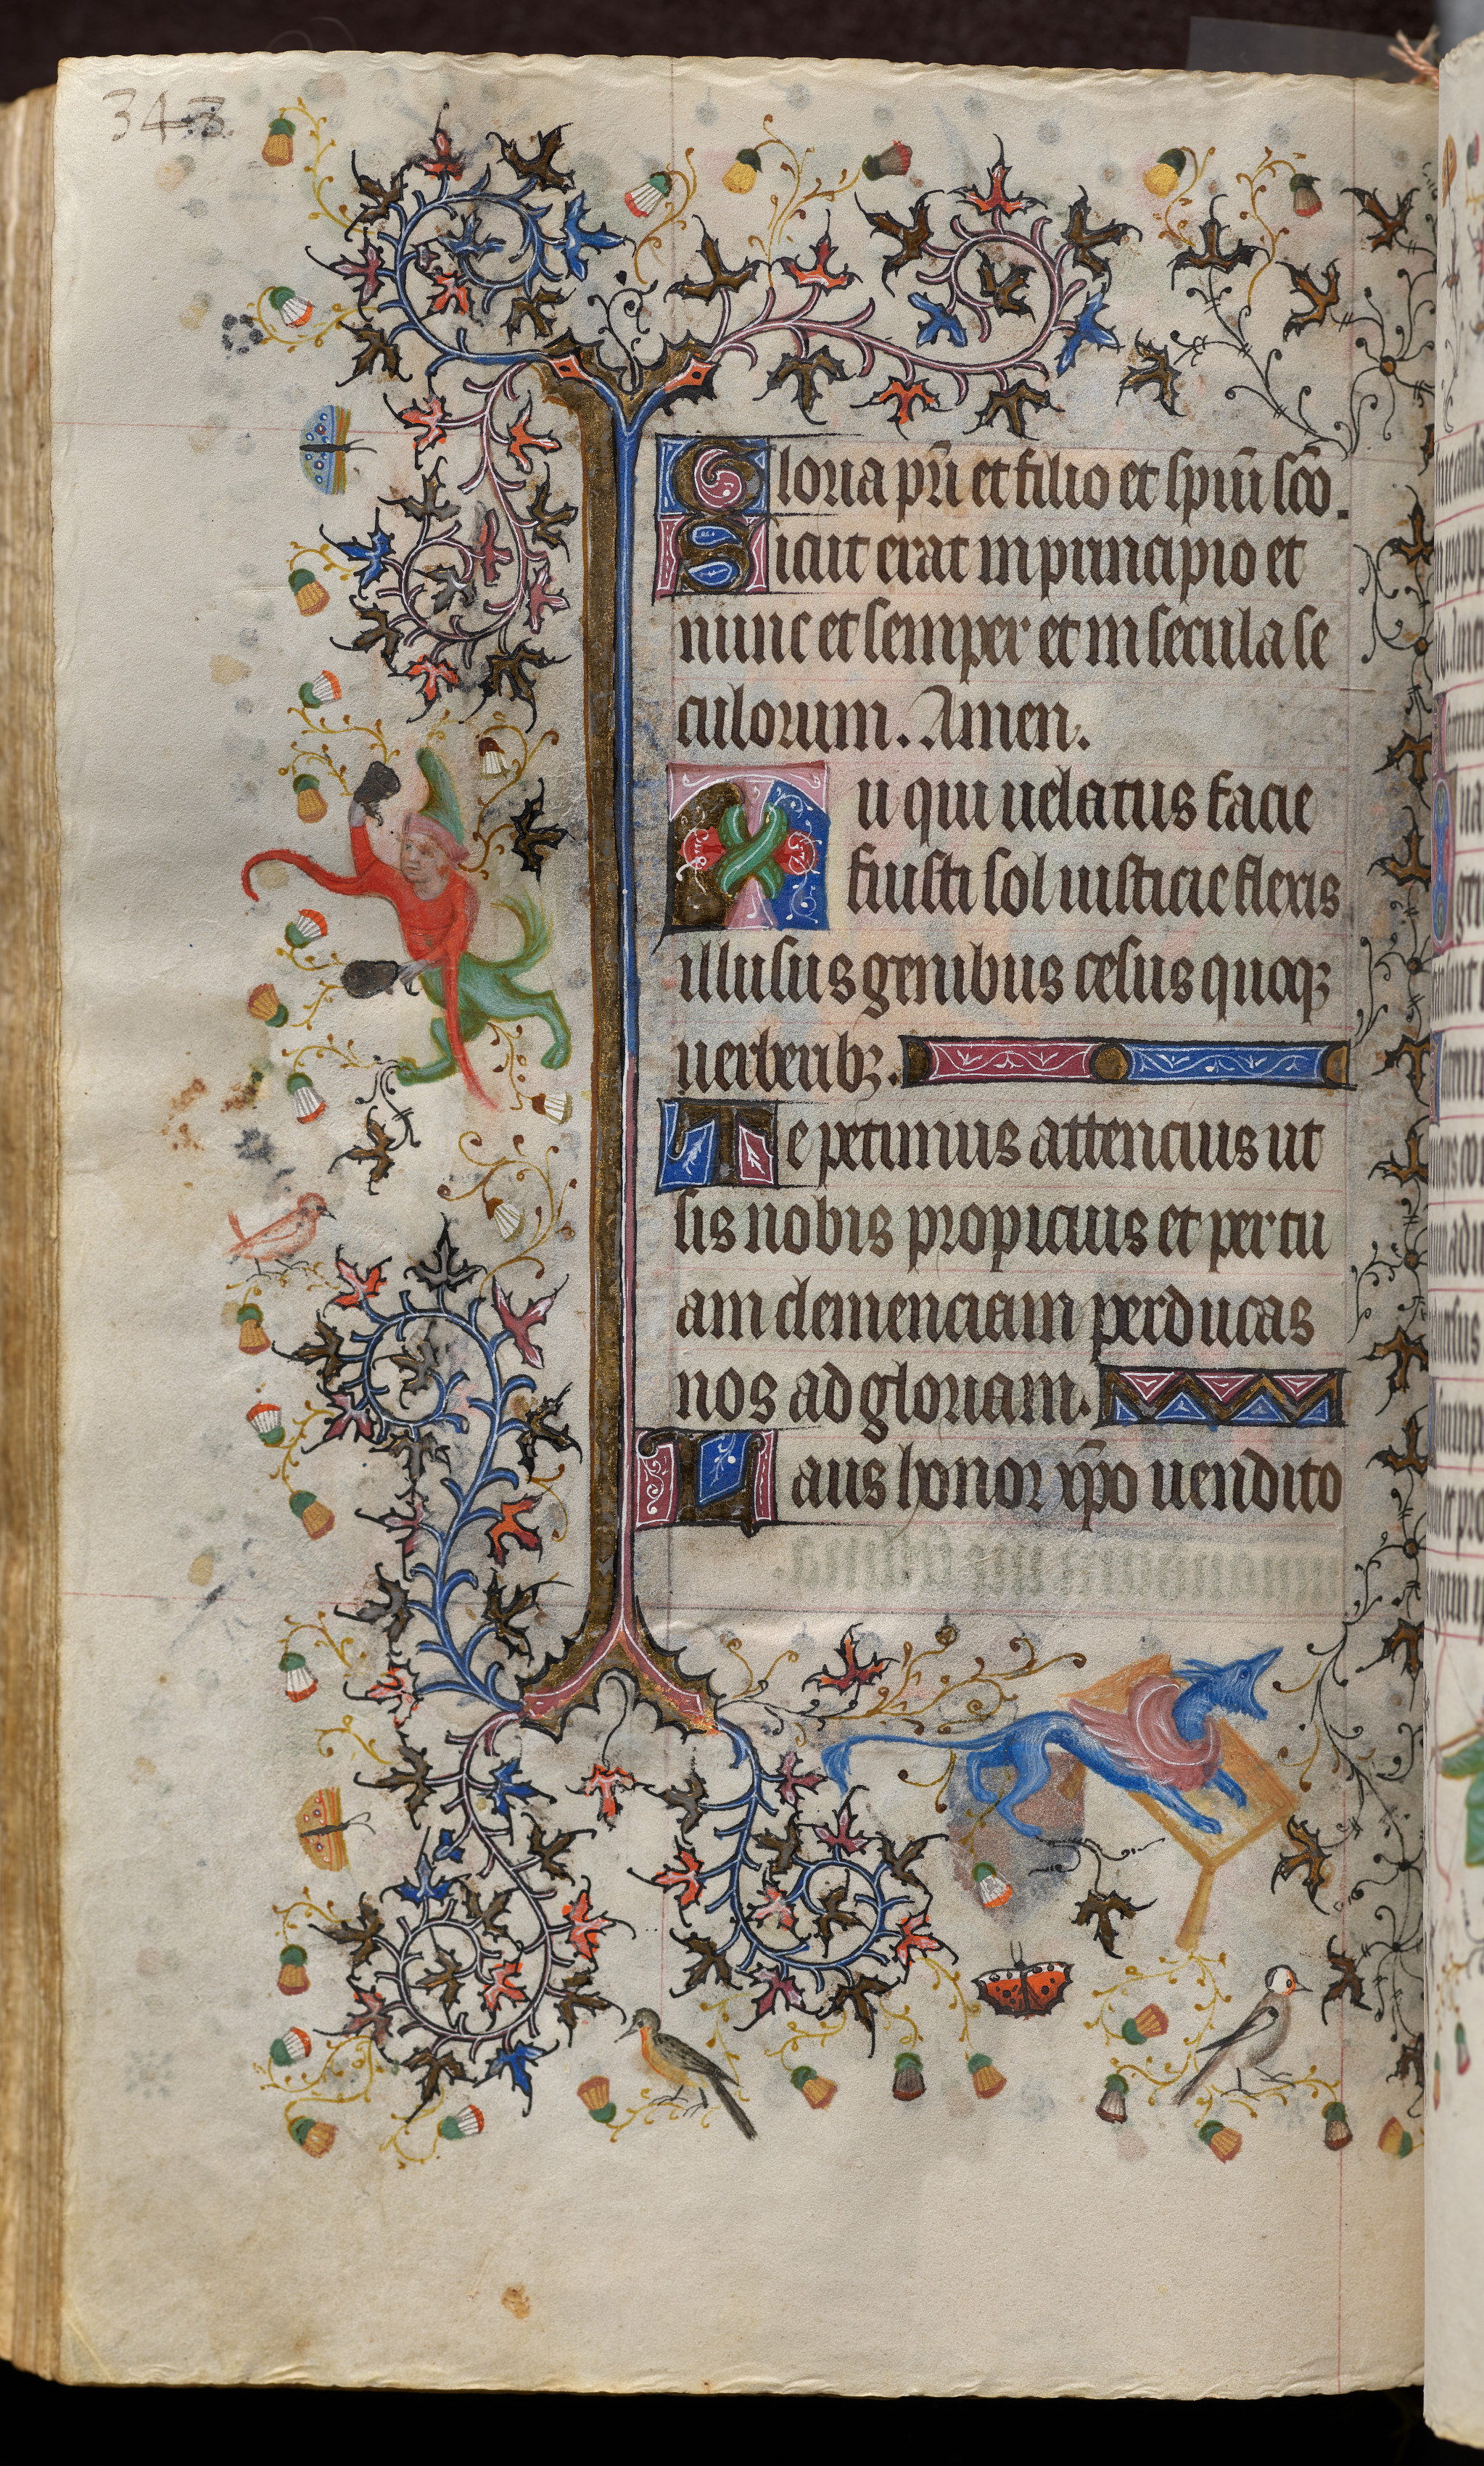 343
Gloria pr̄i et filio et spiū scō.
Sicut erat in principio et
nunc et semper et in secula se
culorum. Amen.
Tu qui uelatus facie
fuisti sol iusticie flexis
illusus genibus cesus quoqȝ
uerberibȝ.
Te petimus attencius ut
sis nobis propicius et per tu
am clemenciam perducas
nos ad gloriam.
Laus honor xp̄o uendito